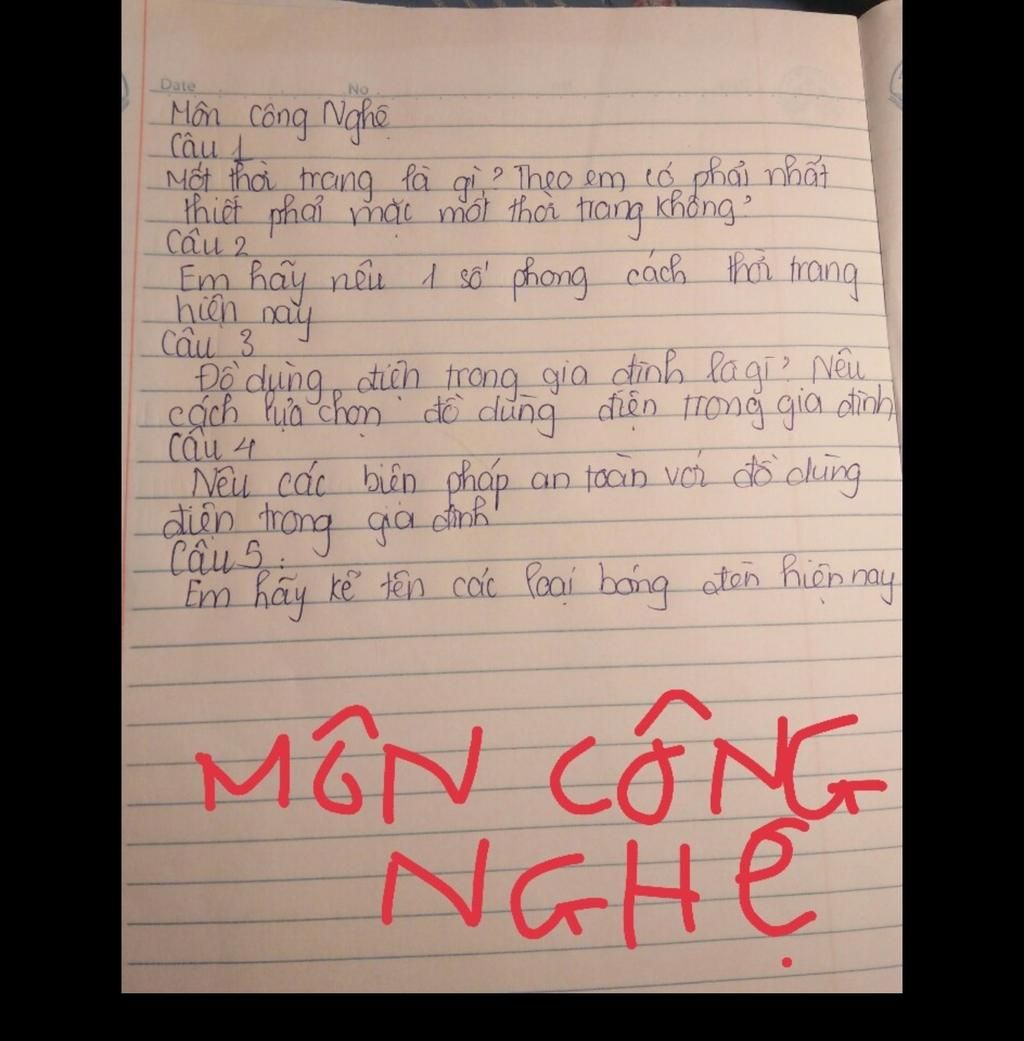 Date No
Môn Công Nghệ
Câu 1
Mốt thời trang là gì? Theo em có phải nhất
thiết phải mặc mốt thời trang không?
Câu 2
Em hãy nêu 1 số phong cách thời trang
hiện nay
Câu 3
Đồ dùng điện trong gia đình là gì? Nêu
cách lựa chọn đồ dùng điện trong gia đình
Câu 4
Nêu các biện pháp an toàn với đồ dùng
điện trong gia đình
Câu 5:
Em hãy kể tên các loại bóng đèn hiện nay
MÔN CÔNG
NGHỆ